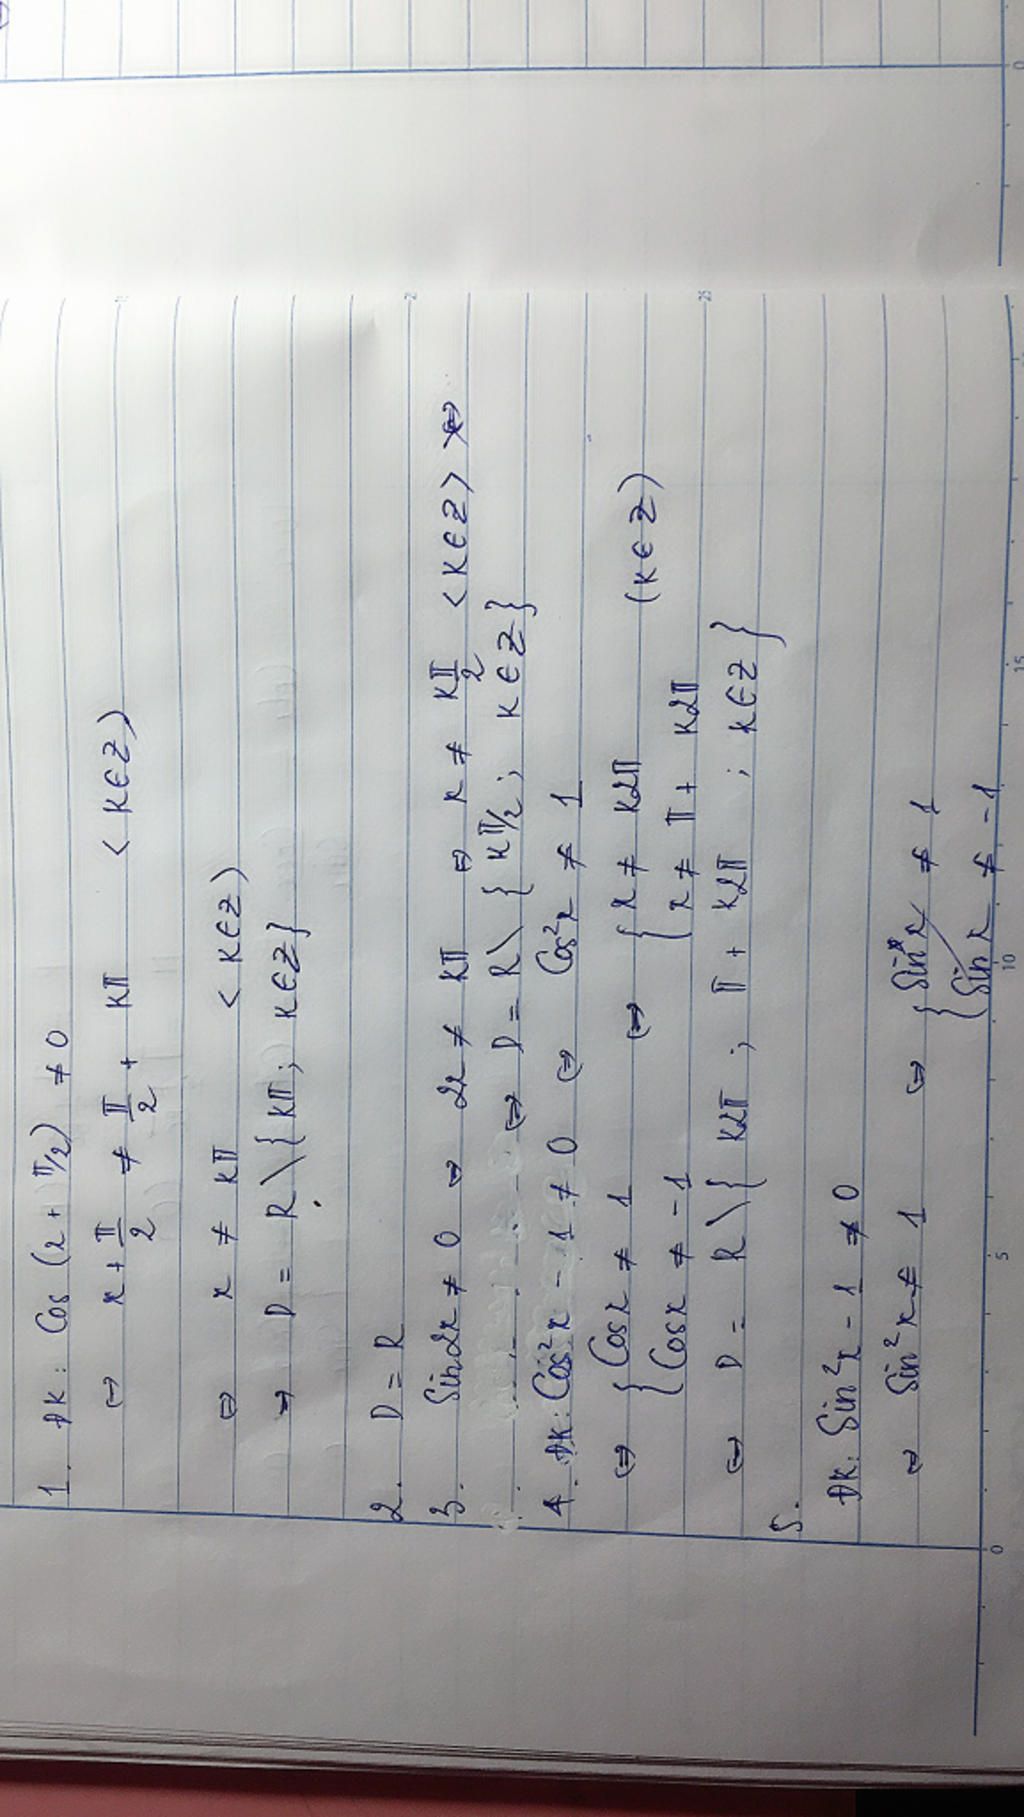 1. ĐK: Cos (x + π/2) ≠ 0
⇔ x + π/2 ≠ π/2 + kπ <k∈Z)
⇔ x ≠ kπ <k∈Z)
⇒ D = R \ {kπ; k∈Z}
2. D = R
3. Sin2x ≠ 0 ⇔ 2x ≠ kπ ⇔ x ≠ kπ/2 <k∈Z>
⇔ D = R \ {kπ/2; k∈Z}
4. ĐK: Cos²x - 1 ≠ 0 ⇔ Cos²x ≠ 1
⇔ { Cosx ≠ 1 ⇔ { x ≠ k2π (k∈Z)
Cosx ≠ -1 x ≠ π + k2π
⇔ D = R \ { k2π ; π + k2π ; k∈Z }
5.
ĐK: Sin²x - 1 ≠ 0
⇔ Sin²x ≠ 1 ⇔ { Sinx ≠ 1
Sinx ≠ -1
25
0
5
10
15
0